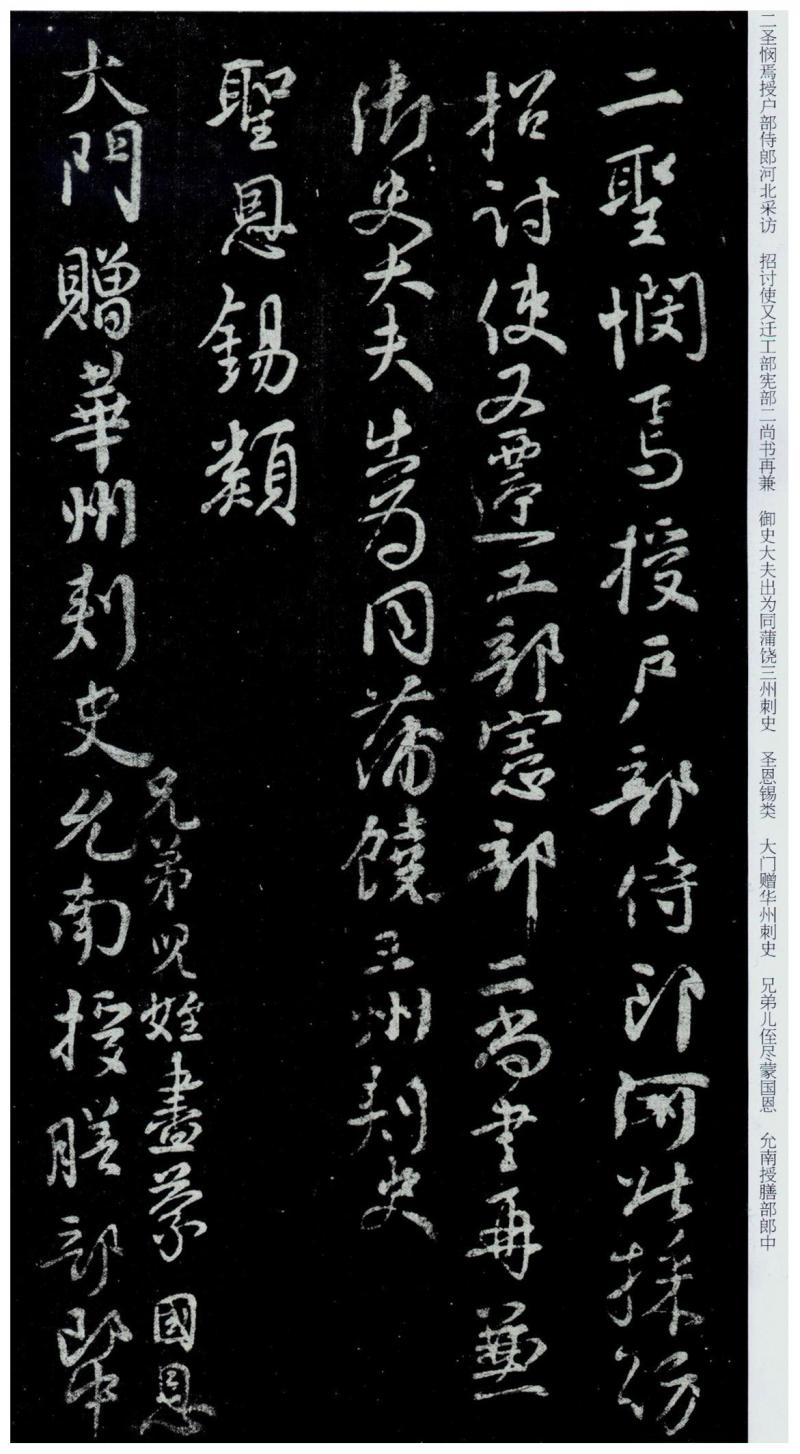 二圣悯焉授户部侍郎河北采访 招讨使又迁工部宪部二尚书再兼 御史大夫出为同蒲饶三州刺史 圣恩锡类 大门赠华州刺史 兄弟儿侄尽蒙国恩 允南授膳部郎中
二聖憫焉授户部侍郎河北採訪
招討使又遷工部憲部二尚書再兼
御史大夫出為同蒲饒三州刺史
聖恩錫類
兄弟兒姪盡蒙國恩
大門贈華州刺史允南授膳部郎中